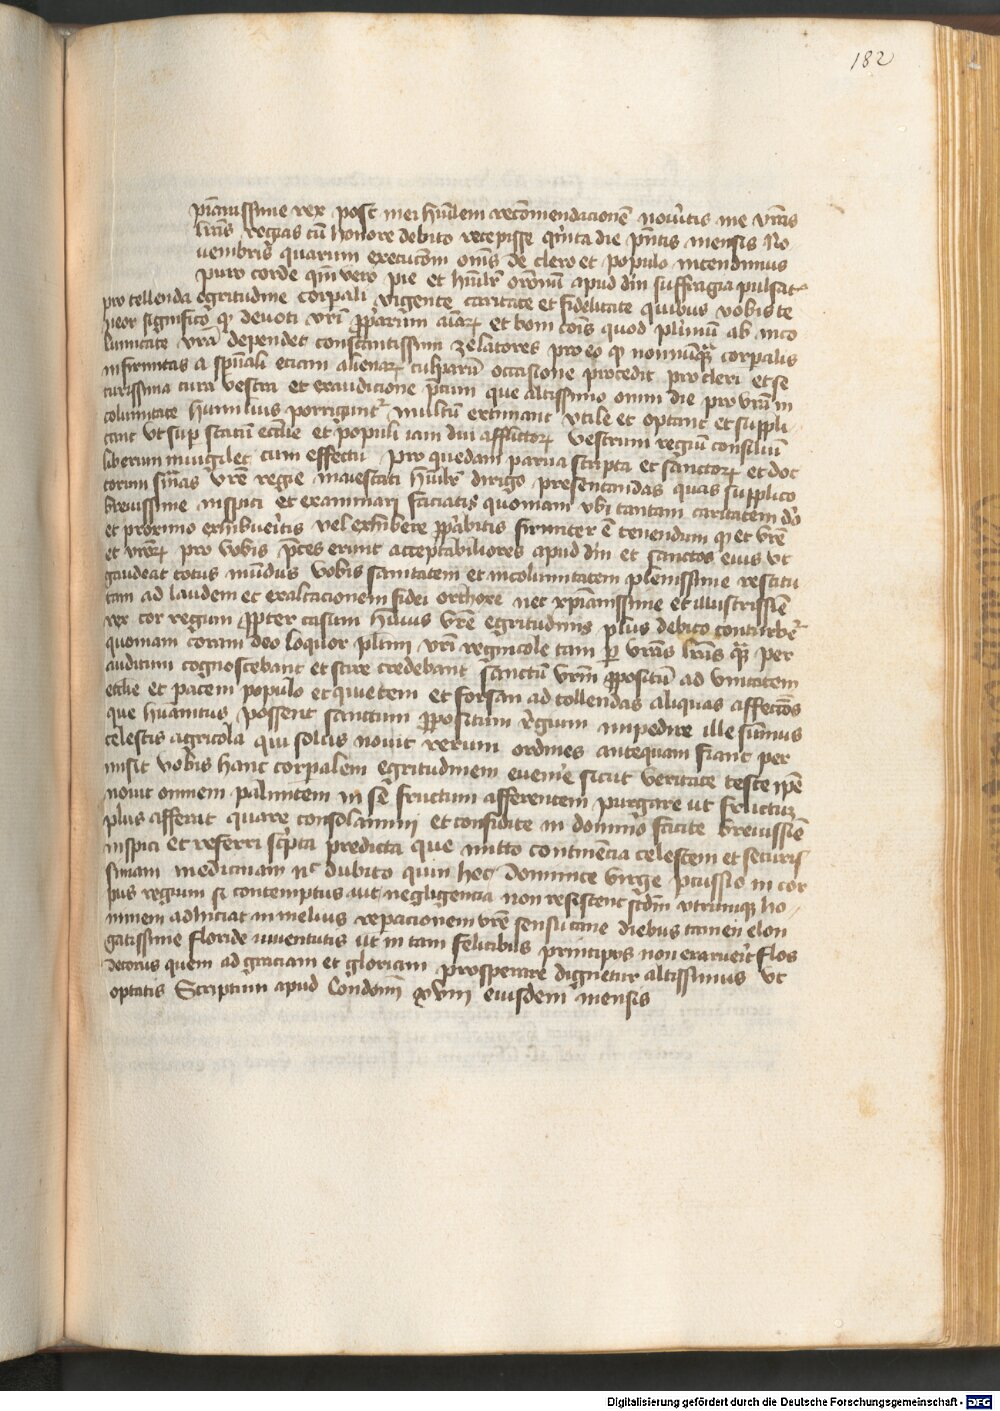 182
pianissime rex post mei humilem recomendacionē noveritis me vr̄as
lr̄as regias cū honore debito recepisse quinta die p̄ntis mensis No
vembris quarum execucōni om̄s de clero et populo intendimus
puro corde qm̄ vero pie et humilr̄ or̄onū apud dm̄ suffragia pulsat
pro tollenda egritudine corpali vigente caritate et fidelitate quibus vobis te
neor significo qꝫ devoti vr̄i pp̄arum aīarꝫ et boni cōis quod plurimū ab inco
lumitate vr̄a dependet constantissimi zelatores pro eo qꝫ nonnūqꝫ corpalis
infirmitas a spūali eciam alienarꝫ culparū occasione procedit pro cleri et se
curissima cura vestra et exaudicione p̄cum que altissimo omni die pro vr̄a in
columitate humilius porriguntr̄ multū extimant utile et optant et suppli
cant ut sup statū eccl̄ie et populi iam diu afflictorꝫ vestrum regiū consiliū
liberum invigilet cum effectu pro quedam parva scripta et sanctorꝫ et doc
torum sn̄ias vr̄e regie maiestati humilr̄ dirigo presentandas quas supplico
brevissime inspici et examinari faciatis quoniam ubi tantam caritatem deo
et proximo exhibueritis vel exhibere pp̄abitis firmiter ē tenendum qꝫ et vr̄e
et vr̄orꝫ pro vobis p̄ces erunt acceptabiliores apud dm̄ et sanctos eius ut
gaudeat totus mūdus vobis sanitatem et incolumitatem plenissime restitu
tam ad laudem et exaltacionem fidei orthoxe nec xp̄ianissime et illustrissīē
rex cor regium ꝓpter casum huius vr̄e egritudinis plus debito conturber̄
quoniam coram deo loquor plimi vr̄i regnicole tam ꝑ vr̄as lr̄as qꝫ per
auditum cognoscebant et scire credebant sanctū vr̄m ꝓpositū ad unitatem
eccl̄ie et pacem populo et quietem et forsan ad tollendas aliquas affectōes
que humanitus possent sanctum ꝓpositum regium impedire ille sūmus
celestis agricola qui solus novit rerum ordines antequam fiant per
misit vobis hanc corpalem egritudinem evenire sicut veritate teste ipē
novit omnem palmitem in se fructum afferentem purgare ut fructuꝫ
plus afferat quare consolamini et confidite in domino facite brevissīē
inspici et referri scripta predicta que mitto continencia celestem et securis
simam medicinam nec dubito quin hec dominice virge pcussio in cor
pus regium si contemptus aut negligencia non resistent scdm̄ utrumqꝫ ho
minem adiiciat in melius reparacionem vr̄e sensu tane diebus tamen elon
gatissime floride iuventutis ut in tam felicibus principiis non exarueit flos
decorus quem ad graciam et gloriam prosperare dignetur altissimus ut
optatis Scriptum apud London xviii eiusdem mensis
Digitalisierung gefördert durch die Deutsche Forschungsgemeinschaft - DFG